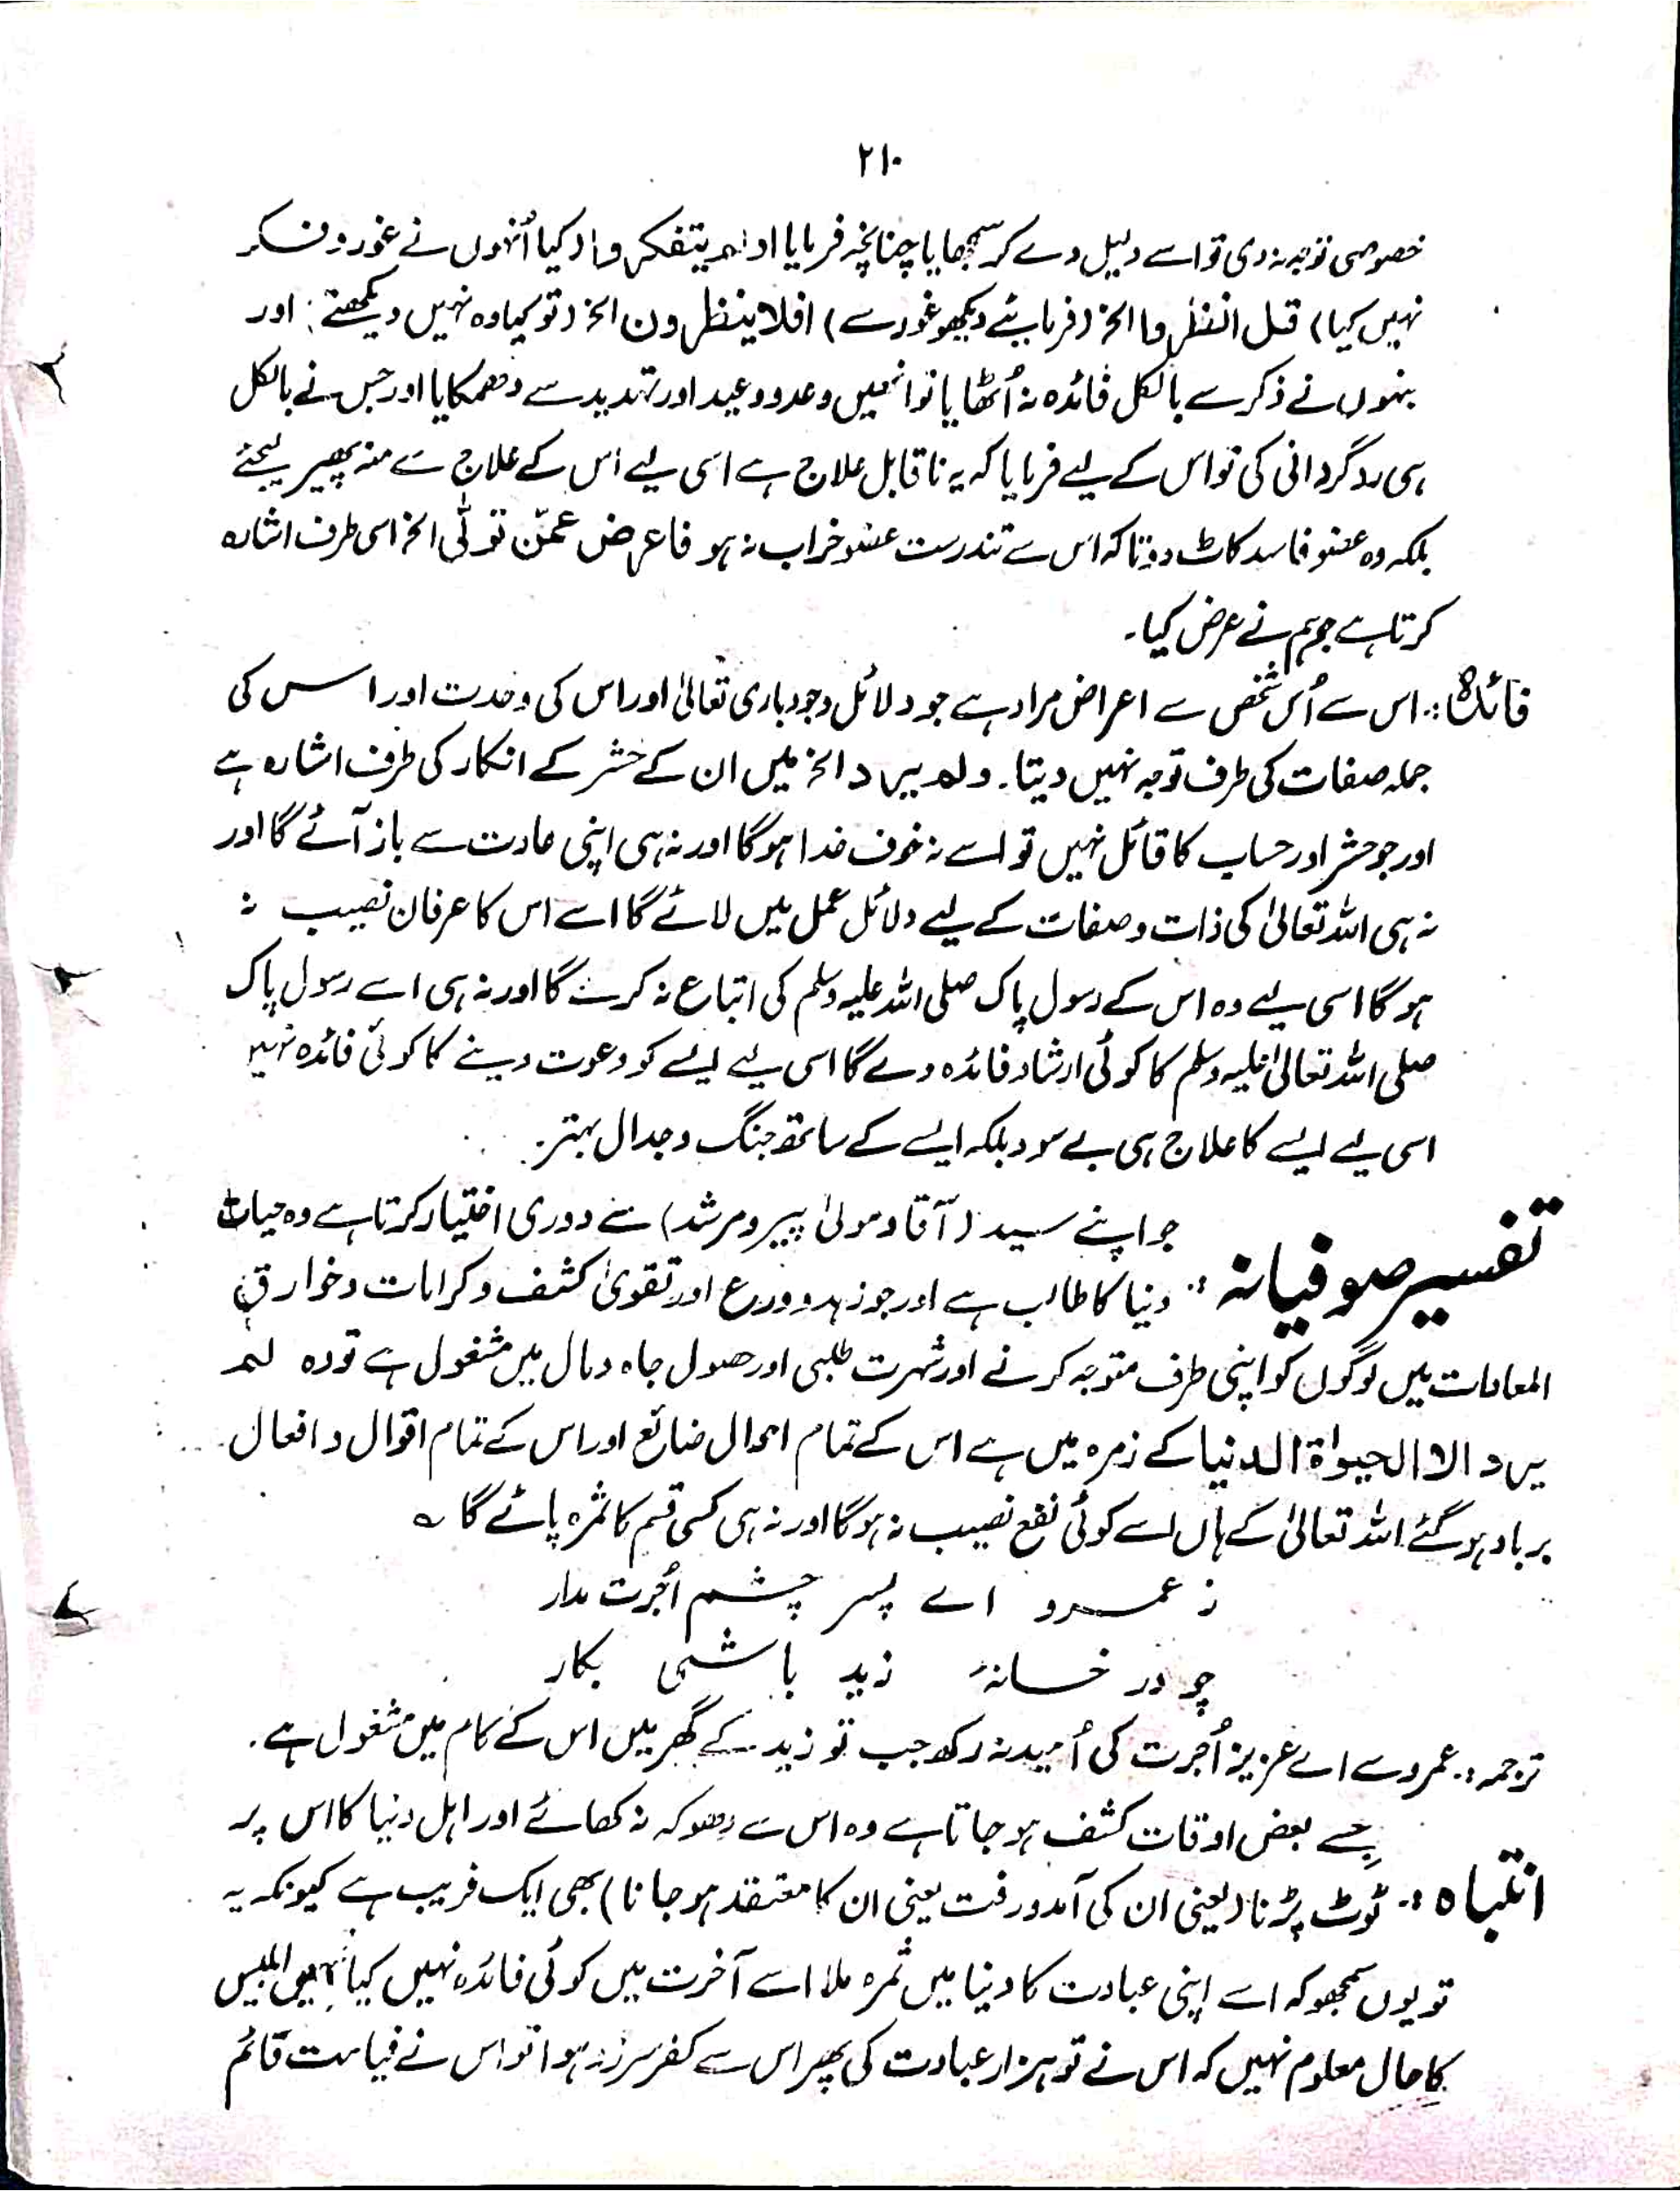 ۲۱۰
خصوصی توجہ نہ دی تو اسے دلیل دے کر سمجھایا چنانچہ فرمایا اولم یتفکروا (کیا اُنہوں نے غور و فکر
نہیں کیا) قل انظروا الخ (فرمایئے دیکھو غور سے) افلا ینظرون الخ (تو کیا وہ نہیں دیکھتے: اور
جنہوں نے ذکر سے بالکل فائدہ نہ اُٹھایا تو انہیں وعد و وعید اور تہدید سے دھمکایا اور جس نے بالکل
ہی ردگردانی کی تو اس کے لیے فرمایا کہ یہ ناقابل علاج ہے اسی لیے اس کے علاج سے منہ پھیر لیجئے
بلکہ وہ عضو فاسد کاٹ دو تا کہ اس سے تندرست عضو خراب نہ ہو فاعرض عمّن تولّٰی الخ اسی طرف اشارہ
کرتا ہے جو ہم نے عرض کیا۔
فائدہ :۔ اس سے اُس شخص سے اعراض مراد ہے جو دلائل وجود باری تعالیٰ اور اس کی وحدت اور اس کی
جملہ صفات کی طرف توجہ نہیں دیتا۔ ولم یرد الخ میں ان کے حشر کے انکار کی طرف اشارہ ہے
اور جو حشر اور حساب کا قائل نہیں تو اسے نہ خوف خدا ہوگا اور نہ ہی اپنی عادت سے باز آئے گا اور
نہ ہی اللہ تعالیٰ کی ذات و صفات کے لیے دلائل عمل میں لائے گا اسے اس کا عرفان نصیب نہ
ہو گا اسی لیے وہ اس کے رسول پاک صلی اللہ علیہ وسلم کی اتباع نہ کرے گا اور نہ ہی اسے رسول پاک
صلی اللہ تعالیٰ علیہ وسلم کا کوئی ارشاد فائدہ دے گا اسی لیے ایسے کو دعوت دینے کا کوئی فائدہ نہیں
اسی لیے ایسے کا علاج ہی بے سود بلکہ ایسے کے ساتھ جنگ و جدال بہتر۔
تفسیر صوفیانہ :۔ جو اپنے سید (آقا و مولیٰ پیر و مرشد) سے دوری اختیار کرتا ہے وہ حیات
دنیا کا طالب ہے اور جو زہد و ورع اور تقویٰ کشف و کرامات و خوارق
العادات میں لوگوں کو اپنی طرف متوجہ کرنے اور شہرت طلبی اور حصول جاہ و مال میں مشغول ہے تو وہ لم
یرد الا الحیوٰۃ الدنیا کے زمرہ میں ہے اس کے تمام احوال ضائع اور اس کے تمام اقوال و افعال
برباد ہو گئے اللہ تعالیٰ کے ہاں اسے کوئی نفع نصیب نہ ہوگا اور نہ ہی کسی قسم کا ثمرہ پائے گا ؎
ز عمرو اے پسر چشم اُجرت مدار
چو در خانۂ زید باشی بکار
ترجمہ :۔ عمرو سے اے عزیز اُجرت کی اُمید نہ رکھ جب تو زید کے گھر میں اس کے کام میں مشغول ہے۔
انتباہ :۔ جسے بعض اوقات کشف ہو جاتا ہے وہ اس سے دھوکہ نہ کھائے اور اہل دنیا کا اس پر
ٹوٹ پڑنا (یعنی ان کی آمد و رفت یعنی ان کا معتقد ہو جانا) بھی ایک فریب ہے کیونکہ یہ
تو یوں سمجھو کہ اسے اپنی عبادت کا دنیا میں ثمرہ ملا اسے آخرت میں کوئی فائدہ نہیں کیا تمہیں ابلیس
کا حال معلوم نہیں کہ اس نے تو ہزار عبادت کی پھر اس سے کفر سرزد ہوا تو اس نے قیامت قائم